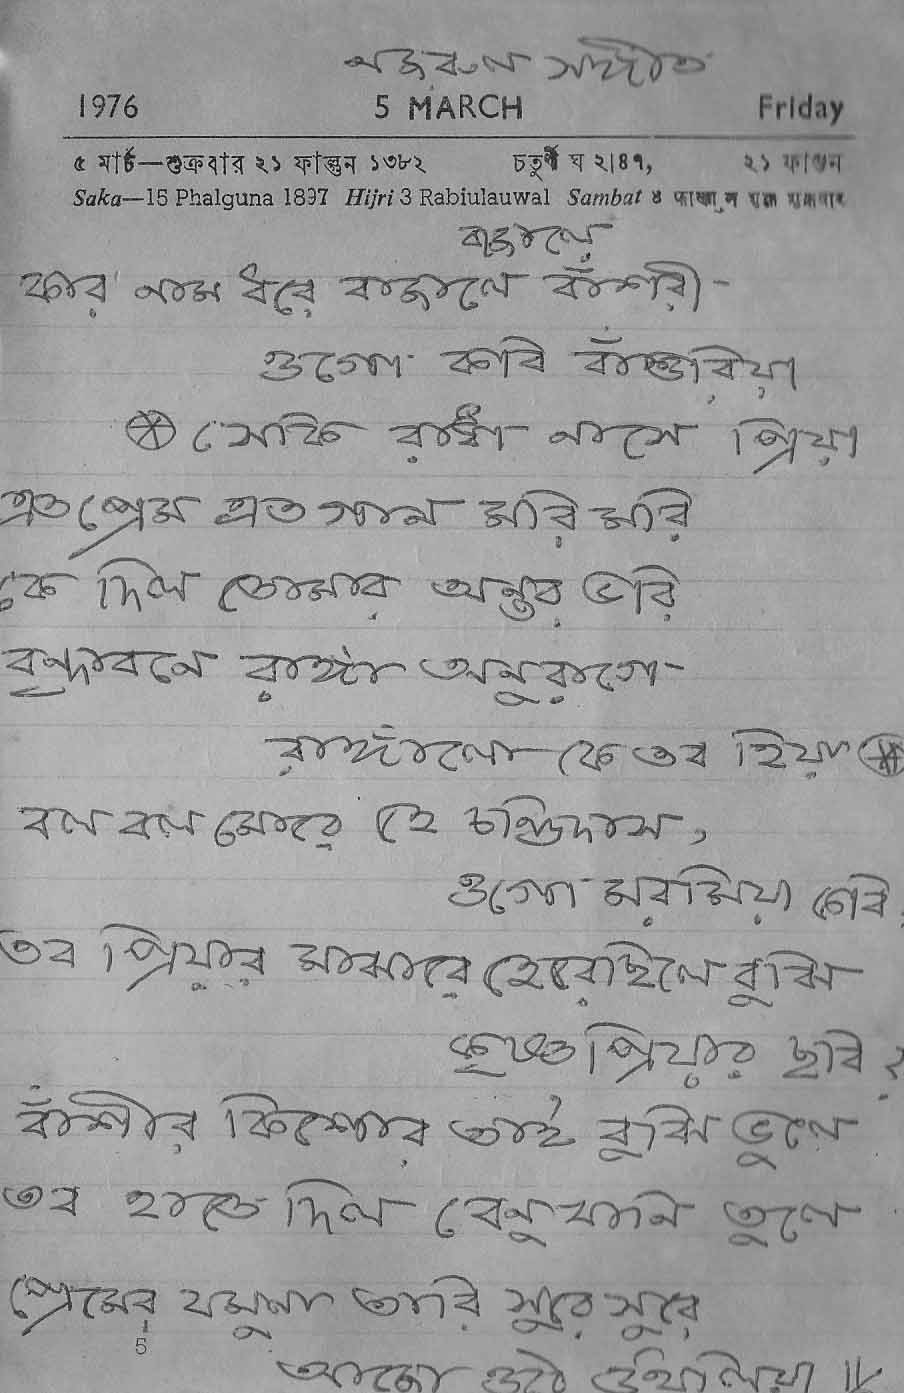 নজরুল সঙ্গীত
1976 5 MARCH Friday
৫ মার্চ—শুক্রবার ২১ ফাল্গুন ১৩৮২ চতুর্থী ঘ ২।৪৭, ২১ ফাগুন
Saka—15 Phalguna 1897 Hijri 3 Rabiulauwal Sambat ४ फाल्गुन शुक्ल शुक्रवार
বাজালে
কার নাম ধরে বাজালে বাঁশরী-
ওগো কবি বাঁশুরিয়া
সেকি রাধা নামে প্রিয়া
এত প্রেম এত গান মরি মরি
কে দিল তোমার অন্তর ভরি
বৃন্দাবনে রাঙ্গা অনুরাগে-
রাঙ্গাঁলো কে তব হিয়া
বল বল মোরে হে চণ্ডিদাস,
ওগো মরমিয়া কবি,
তব প্রিয়ার মাঝারে হেরেছিলে বুঝি
কৃষ্ণ প্রিয়ার ছবি?
বাঁশীর কিশোর তাই বুঝি ভুলে
তব হাতে দিল বেনুখানি তুলে
প্রেমের যমুনা তারি সুরে সুরে
5
আজো ওঠে উথলিয়া॥